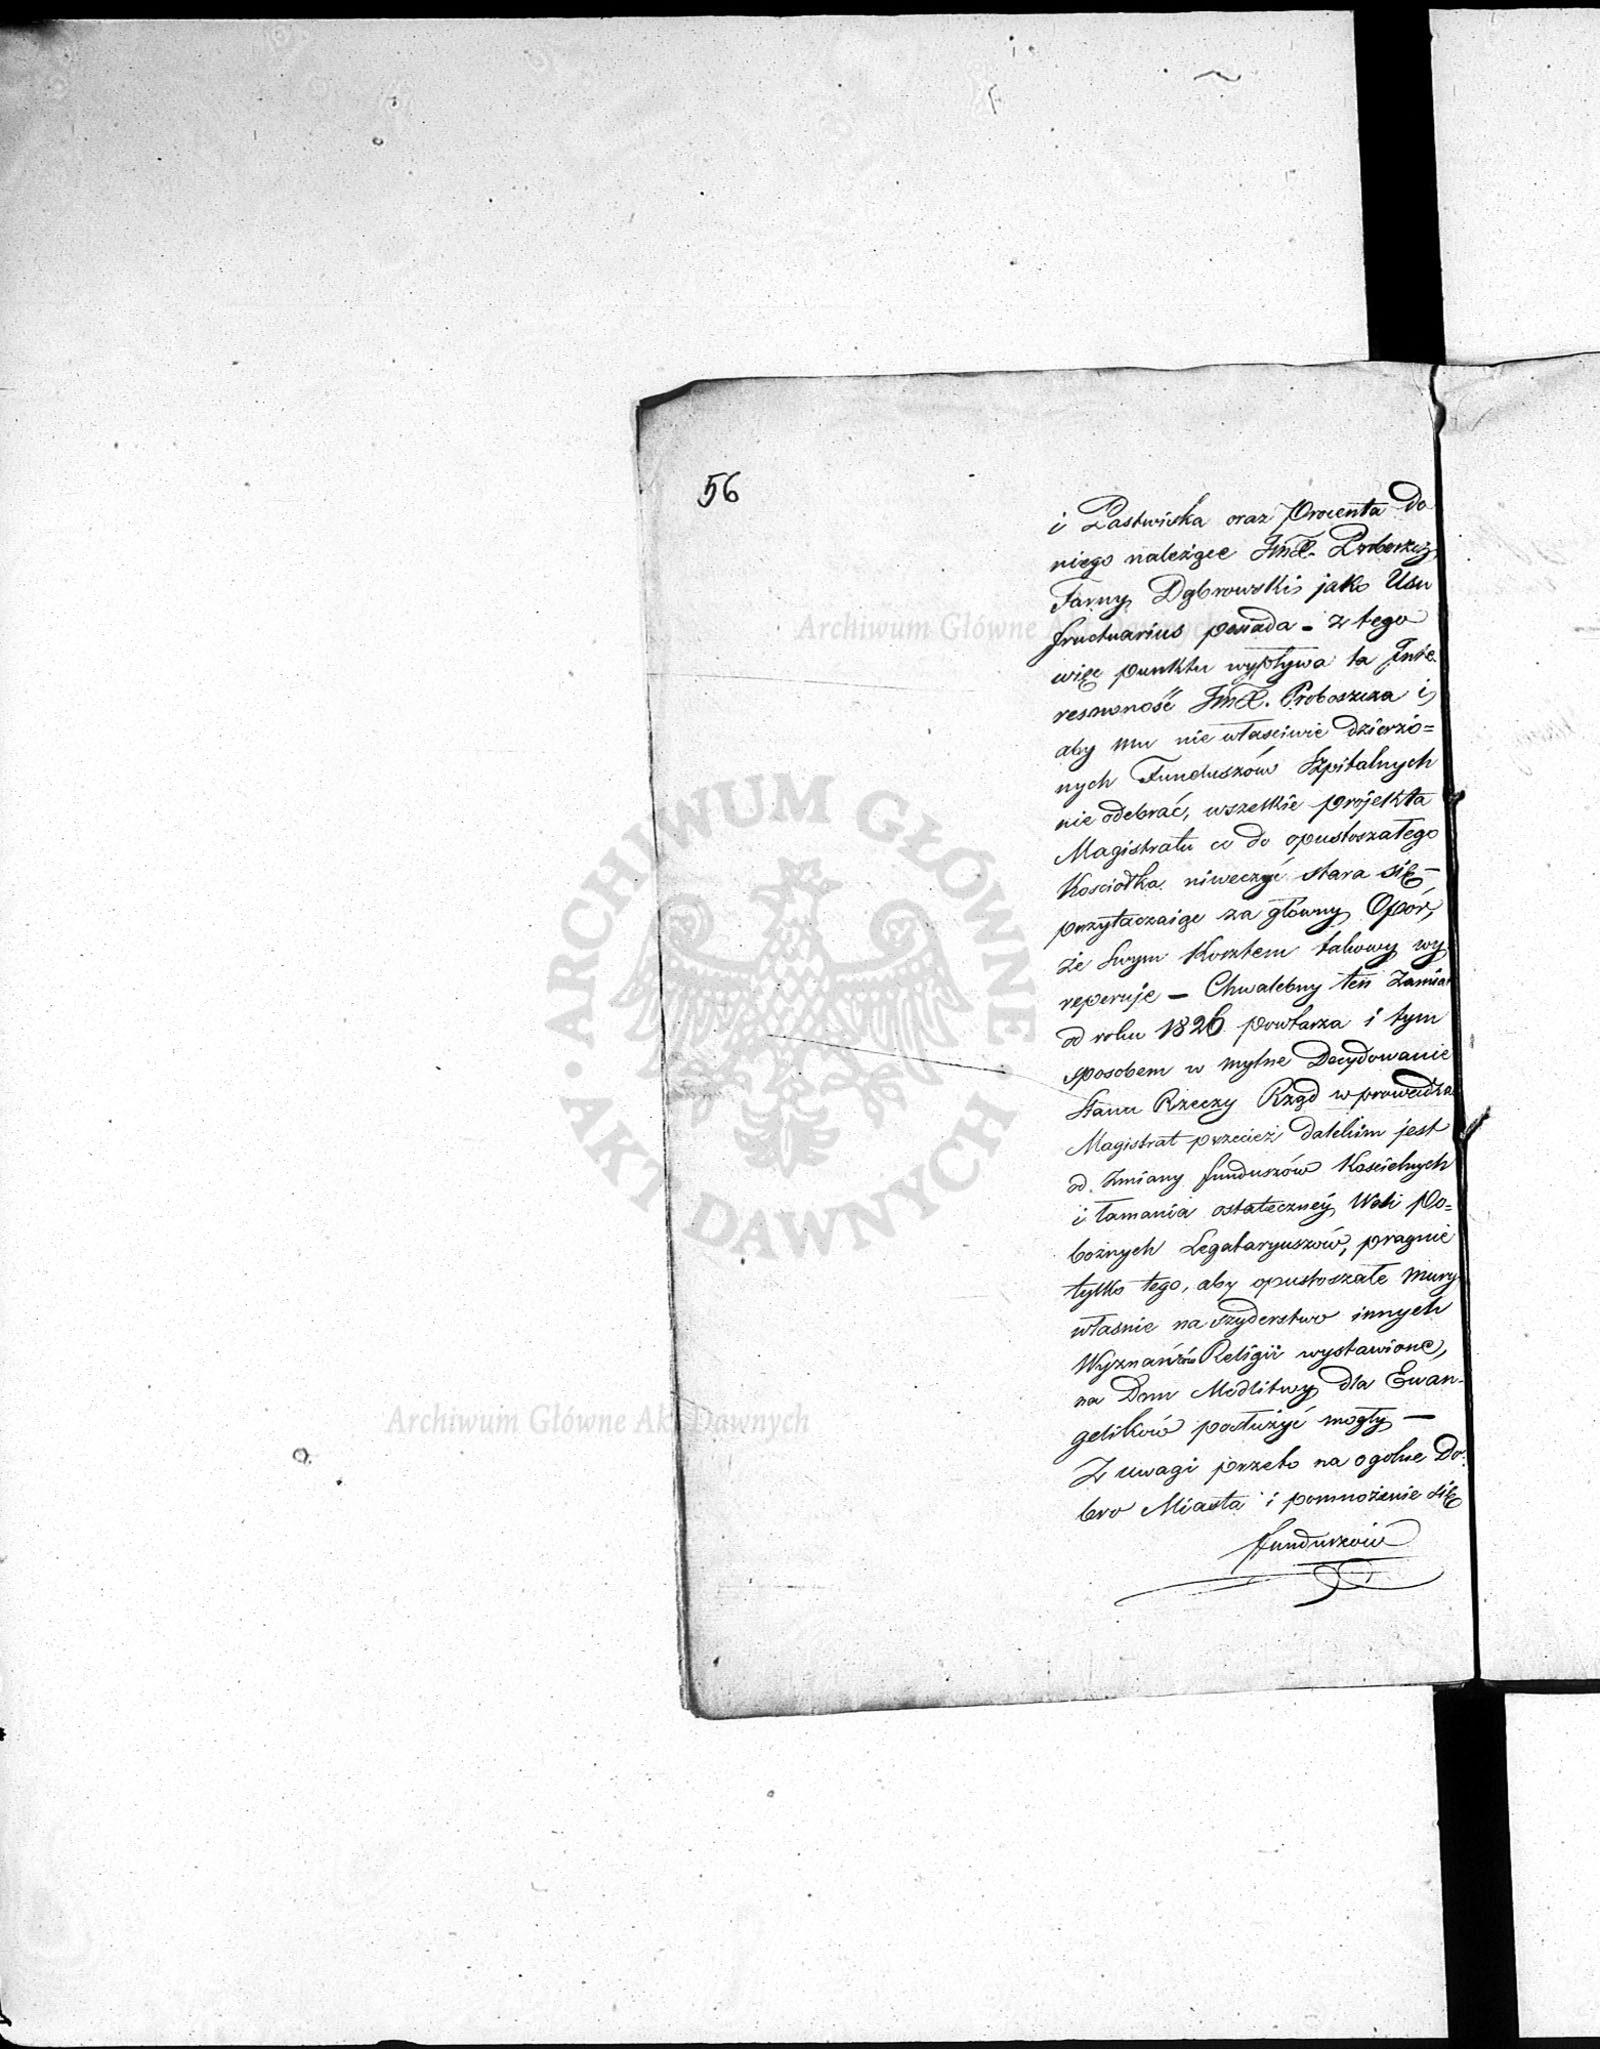 56
i Pastwiska oraz Procenta do
niego należące JmX. Proboszcz
Farny Dąbrowski jako Usu
fructuarius posiada - z tego
więc punktu wypływa ta Inte-
resowność JmX. Proboszcza i
aby mu nie właściwie dzierżo=
nych Funduszów Szpitalnych
nie odebrać, wszelkie projekta
Magistratu co do opustoszałego
Kościołka niweczyć stara się –
przytaczaiąc za główny Opór,
że swym Kosztem takowy wy
reperuje – Chwalebny ten Zamiar
od roku 1826 powtarza i tym
sposobem w mylne Decydowanie
Stanu Rzeczy Rząd wprowadza
Magistrat przecież dalekim jest
od Zmiany funduszów Kościelnych
i łamania ostateczney Woli Po=
bożnych Legataryuszów, pragnie
tylko tego, aby opustoszałe mury
właśnie na szyderstwo innych
Wyznańców Religii wystawione,
na Dom Modlitwy dla Ewan-
gelików posłużyć mogły –
Z uwagi przeto na ogolne Do-
bro Miasta i pomnożenie się
funduszów
Archiwum Główne Akt Dawnych
ARCHIWUM GŁÓWNE • AKT DAWNYCH •
Archiwum Główne Akt Dawnych